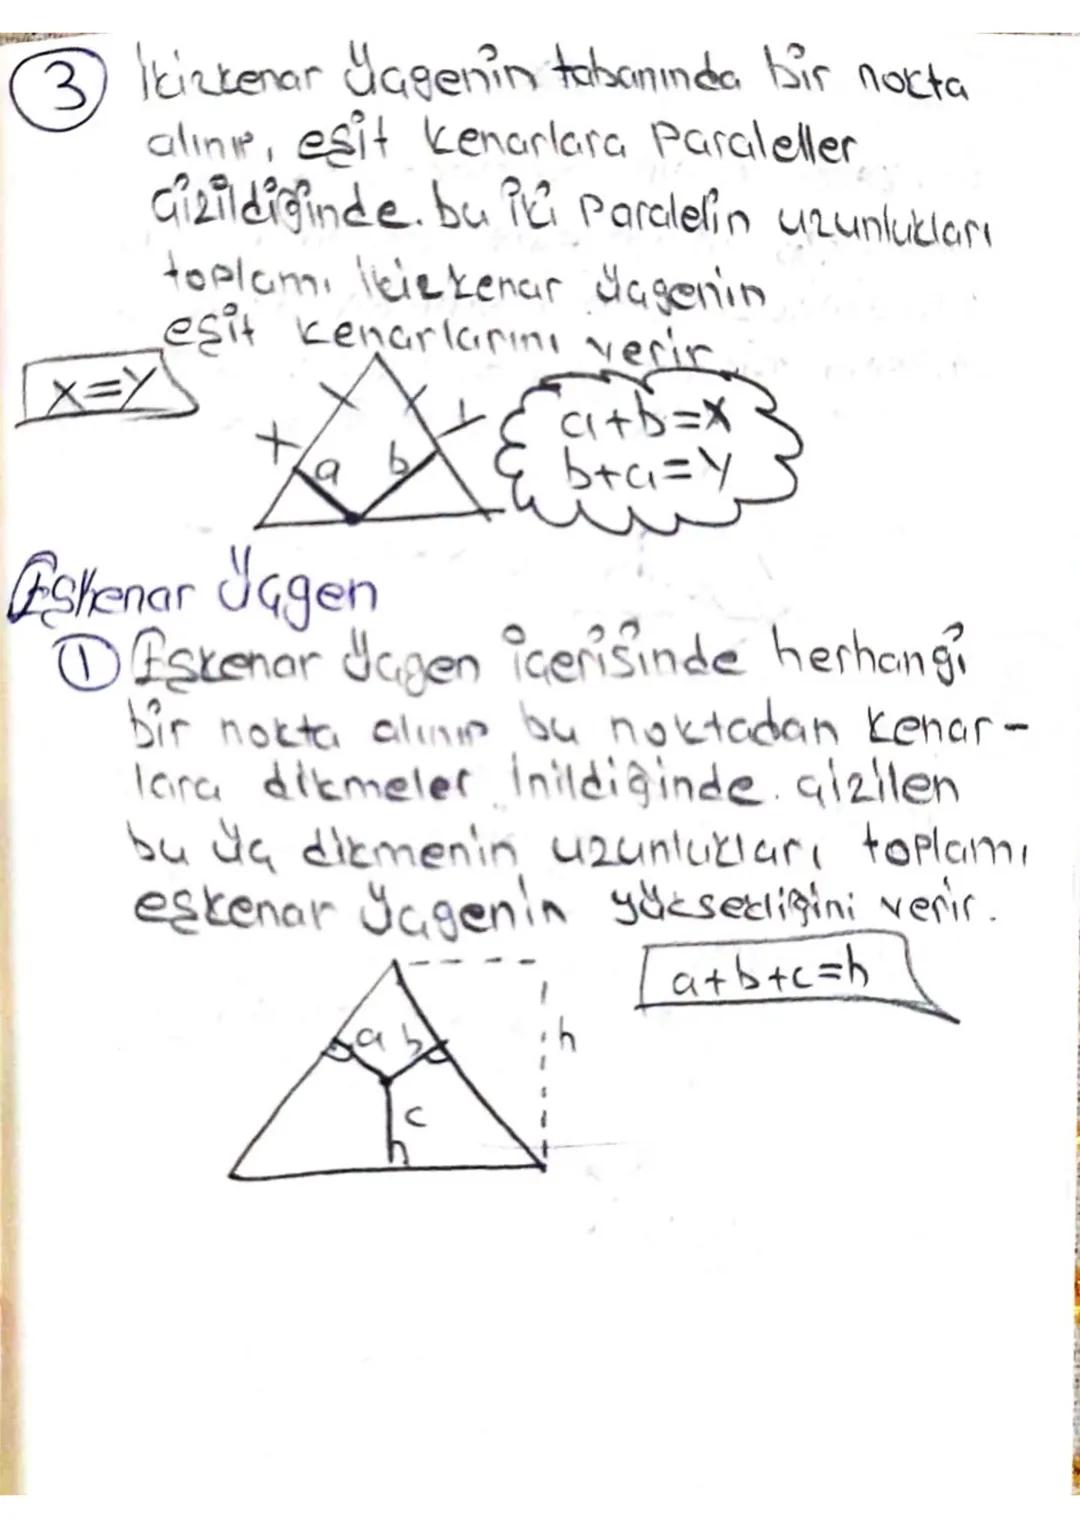 3 İkizkenar üçgenin tabanında bir nokta
alınıp, eşit kenarlara paraleller
çizildiğinde. bu iki paralelin uzunlukları
toplamı ikizkenar üçgenin
eşit kenarlarını verir
x=y
x
a b
y
a+b=x
b+a=y
Eşkenar üçgen
1 Eşkenar üçgen içerisinde herhangi
bir nokta alınıp bu noktadan kenar-
lara dikmeler inildiğinde. çizilen
bu üç dikmenin uzunlukları toplamı
eşkenar üçgenin yüksekliğini verir.
a+b+c=h
a b
h
c